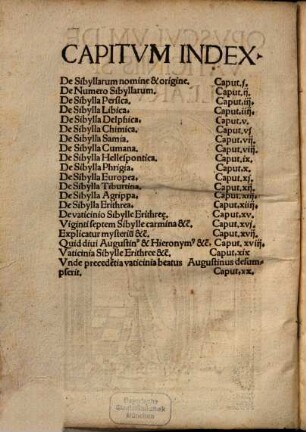 CAPITVM INDEX.
De Sibyllarum nomine & origine. Caput.j.
De Numero Sibyllarum. Caput.ij.
De Sibylla Persica. Caput.iij.
De Sibylla Libica. Caput.iiij.
De Sibylla Delphica. Caput.v.
De Sibylla Chimica. Caput.vj
De Sibylla Samia. Caput.vij.
De Sibylla Cumana. Caput.viij.
De Sibylla Hellespontica. Caput.ix.
De Sibylla Phrigia. Caput.x.
De Sibylla Europea. Caput.xj.
De Sibylla Tiburtina. Caput.xij.
De Sibylla Agrippa. Caput.xiij.
De Sibylla Erithrea. Caput.xiiij.
De vaticinio Sibylle Erithreę. Caput.xv.
Viginti septem Sibylle carmina &c̄. Caput.xvj.
Explicatur mysteriū &c̄. Caput.xvij.
Quid diui Augustinꝰ & Hieronymꝰ &c̄. Caput.xviij.
Vaticinia Sibylle Erithree &c̄. Caput.xix
Vnde precedētia vaticinia beatus Augustinus desum-
pserit. Caput.xx.
Bayerische
Staatsbibliothek
München